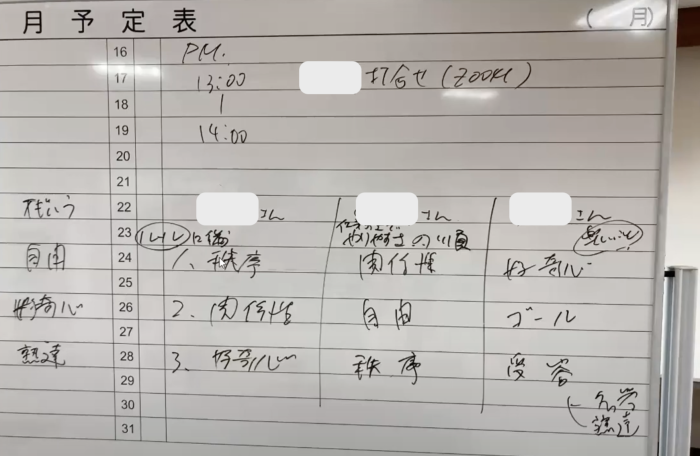 月予定表 (月)
16 PM.
17 13:00 打合せ(ZOOM)
18 |
19 14:00
20
21
22 さん さん さん
23 やりやすさの順
自由 24 1. 秩序 関係性 好奇心
25
好奇心 26 2. 関係性 自由 ゴール
27
熟達 28 3. 好奇心 秩序 受容
29
30
31 熟達